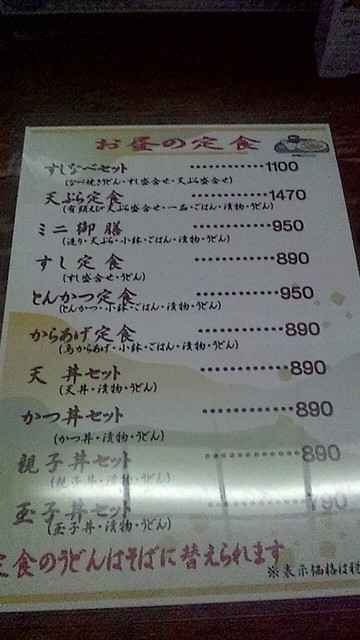 お昼の定食
すしなべセット ・・・・・・・・・・・1100
(なべ焼きうどん・すし盛合せ・天ぷら盛合せ)
天ぷら定食 ・・・・・・・・・・・1470
(有頭えび天ぷら盛合せ・一品・ごはん・漬物・うどん)
ミニ御膳 ・・・・・・・・・・・950
(造り・天ぷら・小鉢・ごはん・漬物・うどん)
すし定食 ・・・・・・・・・・・890
(すし盛合せ・うどん)
とんかつ定食 ・・・・・・・・・・・950
(とんかつ・小鉢・ごはん・漬物・うどん)
からあげ定食 ・・・・・・・・・・・890
(鳥からあげ・小鉢・ごはん・漬物・うどん)
天丼セット ・・・・・・・・・・・890
(天丼・漬物・うどん)
かつ丼セット ・・・・・・・・・・・890
(かつ丼・漬物・うどん)
親子丼セット ・・・・・・・・・・・890
(親子丼・漬物・うどん)
玉子丼セット ・・・・・・・・・・・790
(玉子丼・漬物・うどん)
定食のうどんはそばに替えられます
※表示価格は税